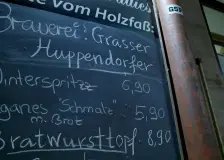 vom Holzfaß:
Brauerei: Grasser
Huppendorfer
Unterspritze 6,90
ganes "Schmalz" 5,90
m. Brot
Bratwursttopf 8,90